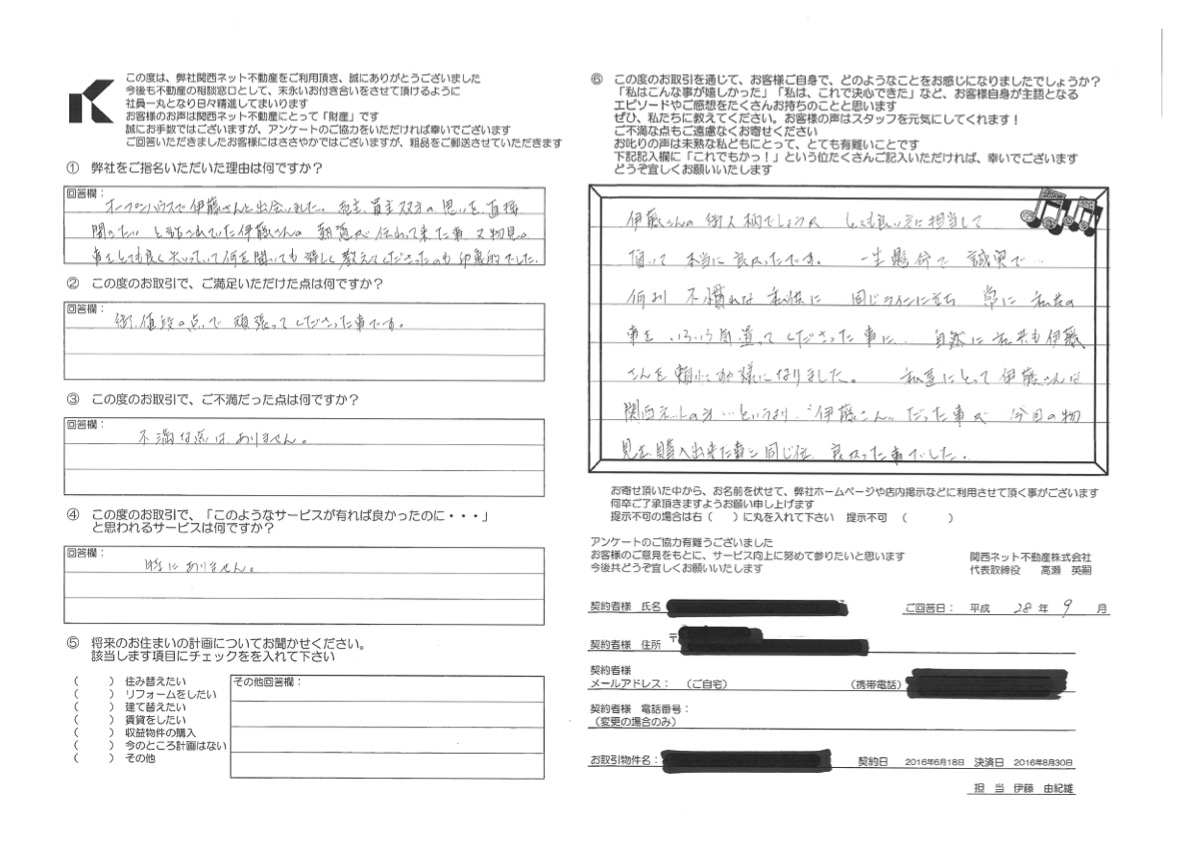 この度は、弊社関西ネット不動産をご利用頂き、誠にありがとうございました
今後も不動産の相談窓口として、末永いお付き合いをさせて頂けるように
社員一丸となり日々精進してまいります
お客様のお声は関西ネット不動産にとって「財産」です
誠にお手数ではございますが、アンケートのご協力をいただければ幸いでございます
ご回答いただきましたお客様にはささやかではございますが、粗品をご郵送させていただきます
① 弊社をご指名いただいた理由は何ですか？
回答欄：
オープンハウスで伊藤さんと出会いました。売主、買主双方の思いを、直接
聞きたい と話されていた伊藤さんの 熱意が伝わって来た事 又物見の
事をとても良く知っていて何を聞いても詳しく教えてくださったのも印象的でした。
② この度のお取引で、ご満足いただけた点は何ですか？
回答欄：
御、値段の点で 頑張ってくださった事です。
③ この度のお取引で、ご不満だった点は何ですか？
回答欄：
不満な点は ありません。
④ この度のお取引で、「このようなサービスが有れば良かったのに・・・」
と思われるサービスは何ですか？
回答欄：
特に ありません。
⑤ 将来のお住まいの計画についてお聞かせください。
該当します項目にチェックをを入れて下さい
（　　）住み替えたい
（　　）リフォームをしたい
（　　）建て替えたい
（　　）賃貸をしたい
（　　）収益物件の購入
（　　）今のところ計画はない
（　　）その他
その他回答欄：
⑥ この度のお取引を通じて、お客様ご自身で、どのようなことをお感じになりましたでしょうか？
「私はこんな事が嬉しかった」「私は、これで決心できた」など、お客様自身が主語となる
エピソードやご感想をたくさんお持ちのことと思います
ぜひ、私たちに教えてください。お客様の声はスタッフを元気にしてくれます！
ご不満な点もご遠慮なくお寄せください
お叱りの声は未熟な私どもにとって、とても有難いことです
下記記入欄に「これでもかっ！」という位たくさんご記入いただければ、幸いでございます
どうぞ宜しくお願いいたします
伊藤さんの 御人柄でしょうか とても良い方に担当して
頂いて 本当に良かったです。 一生懸命で 誠実で…
何より 不慣れな 私供に 同じラインに立ち 常に 私共の
事を、いろいろ気遣って くださった事に、 自然に 私共も伊藤
さんを 頼りにする様になりました。 私達にとって 伊藤さんは
関西ネットの方…というより、“伊藤さん” だった事が 今回の物
見を、購入出来た事と同じ位 良かった事でした。
お寄せ頂いた中から、お名前を伏せて、弊社ホームページや店内掲示などに利用させて頂く事がございます
何卒ご了承頂きますようお願い申し上げます
提示不可の場合は右（　　）に丸を入れて下さい　提示不可　（　　　）
アンケートのご協力有難うございました
お客様のご意見をもとに、サービス向上に努めて参りたいと思います
今後共どうぞ宜しくお願いいたします
関西ネット不動産株式会社
代表取締役　高瀬　英嗣
契約者様　氏名
ご回答日：　平成　28 年　9　月
契約者様　住所　〒
契約者様
メールアドレス：　（ご自宅）　（携帯電話）
契約者様　電話番号：
（変更の場合のみ）
お取引物件名：　契約日　2016年6月18日　決済日　2016年8月30日
担　当　伊藤　由紀雄